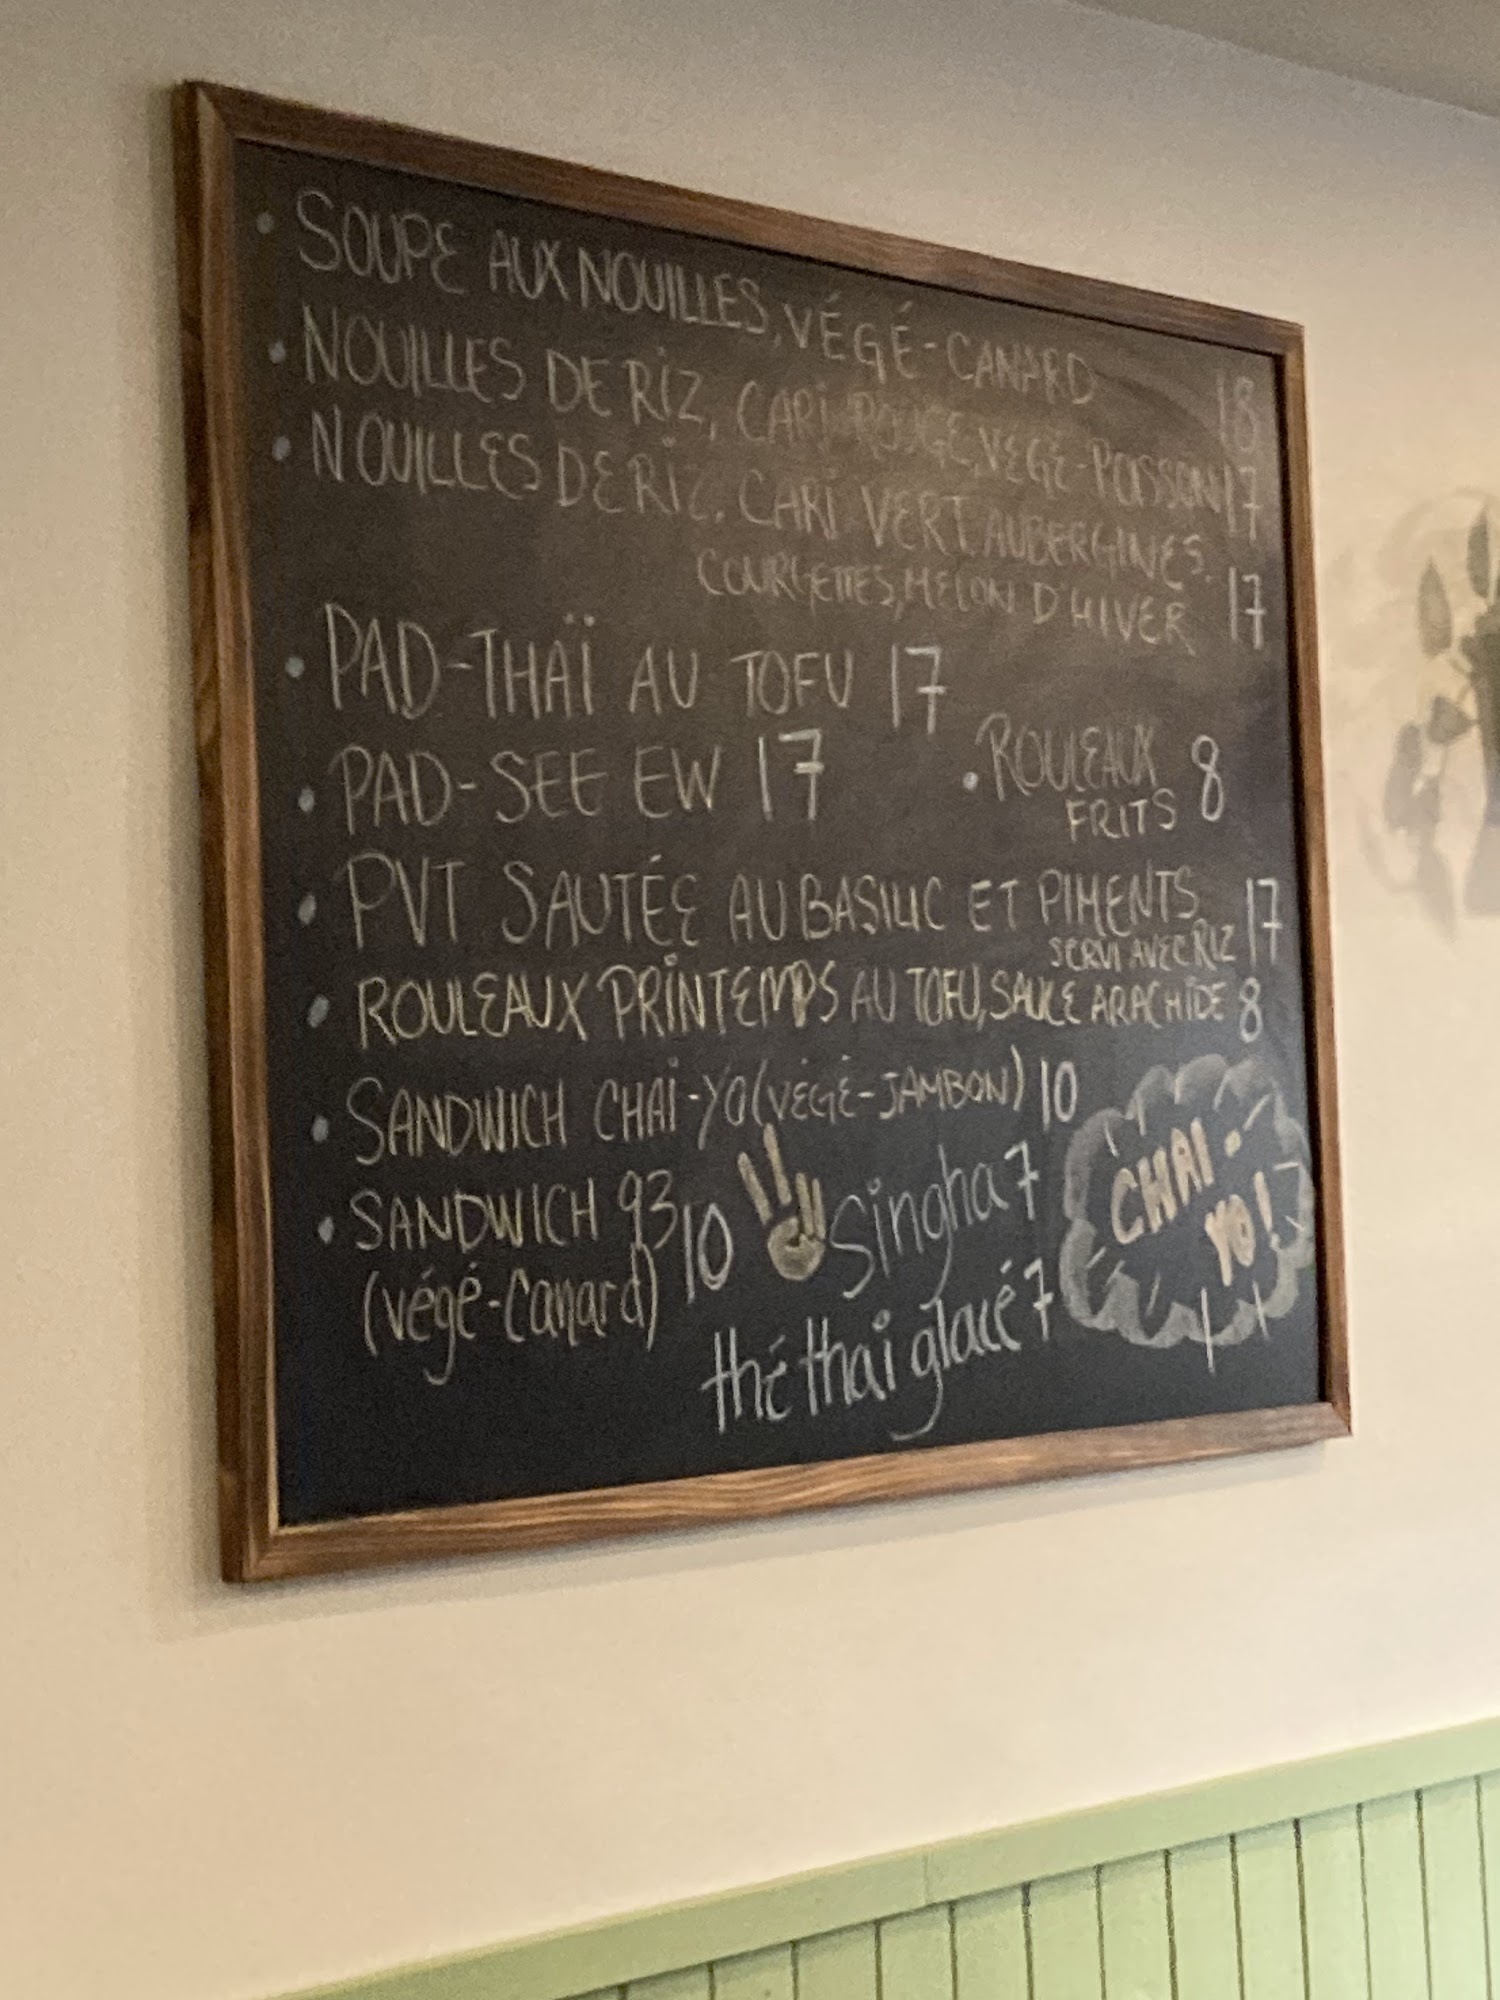 • SOUPE AUX NOUILLES, VÉGÉ-CANARD 18
• NOUILLES DE RIZ, CARI ROUGE, VÉGÉ-POISSON 17
• NOUILLES DE RIZ, CARI VERT AUBERGINES,
COURGETTES, MELON D'HIVER 17
• PAD-THAÏ AU TOFU 17
• PAD-SEE EW 17
• ROULEAUX
FRITS 8
• PVT SAUTÉE AU BASILIC ET PIMENTS 17
SERVI AVEC RIZ
• ROULEAUX PRINTEMPS AU TOFU, SAUCE ARACHIDE 8
• SANDWICH CHAI-YO (VÉGÉ-JAMBON) 10
• SANDWICH 93
(végé-Canard) 10
Singha 7
thé thai glacé 7
CHAI-
YO!